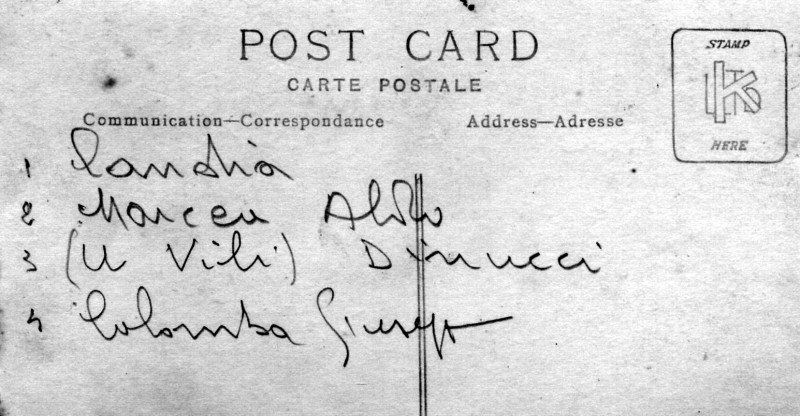 POST CARD
CARTE POSTALE
STAMP
K
HERE
Communication—Correspondance Address—Adresse
1 Candia
2 Marceu Aldo
3 (U Vili) Dinucci
4 Colomba Giusep